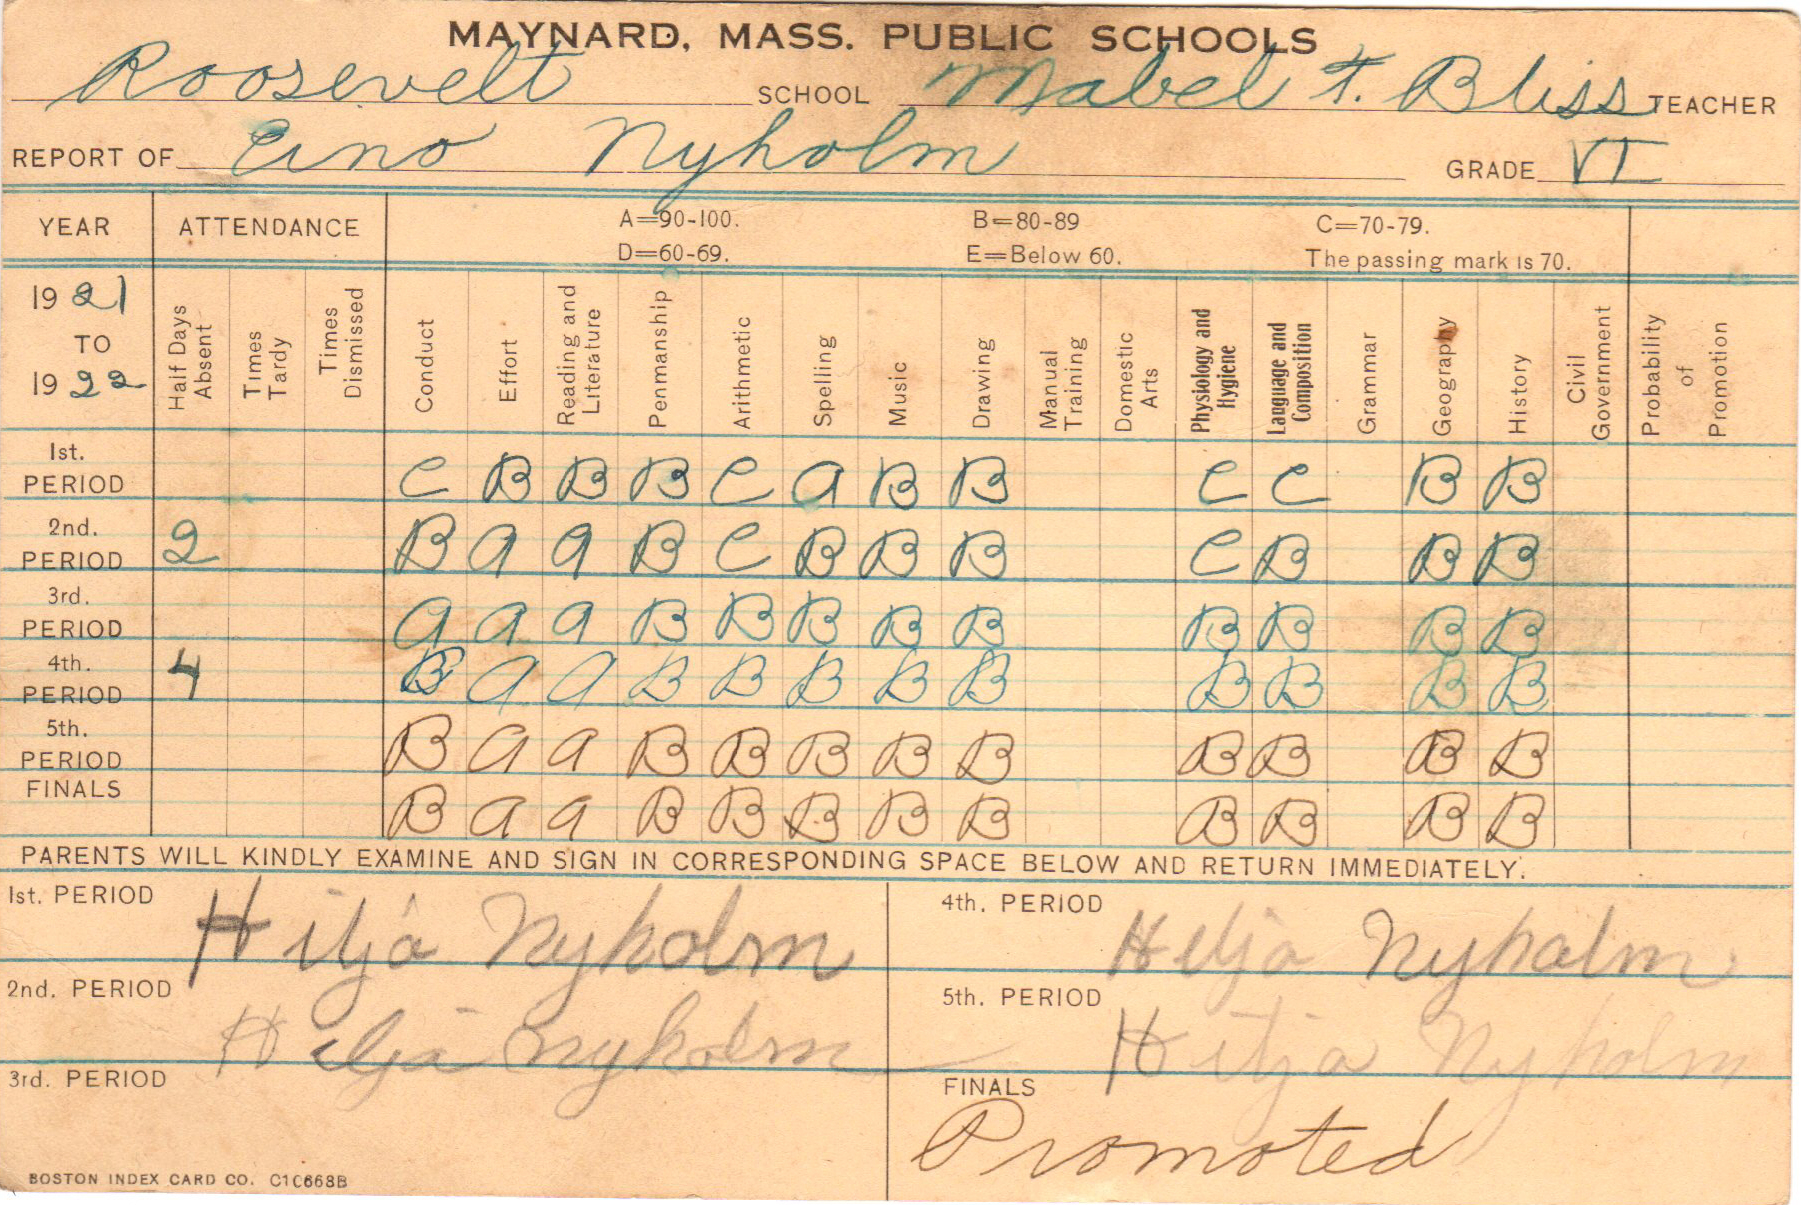 MAYNARD, MASS. PUBLIC SCHOOLS
Roosevelt SCHOOL Mabel T. Bliss TEACHER
REPORT OF Eino Nyholm GRADE VI
YEAR ATTENDANCE A=90-100. B=80-89 C=70-79.
D=60-69. E=Below 60. The passing mark is 70.
1921 TO 1922 Half Days Absent Times Tardy Times Dismissed Conduct Effort Reading and Literature Penmanship Arithmetic Spelling Music Drawing Manual Training Domestic Arts Physiology and Hygiene Language and Composition Grammar Geography History Civil Government Probability of Promotion
1st. PERIOD C B B B C A B B C C B B
2nd. PERIOD 2 B A A B C B B B C B B B
3rd. PERIOD A A A B B B B B B B B B
4th. PERIOD 4 B A A B B B B B B B B B
5th. PERIOD B A A B B B B B B B B B
FINALS B A A B B B B B B B B B
PARENTS WILL KINDLY EXAMINE AND SIGN IN CORRESPONDING SPACE BELOW AND RETURN IMMEDIATELY.
1st. PERIOD Hilja Nyholm
4th. PERIOD Hilja Nyholm
2nd. PERIOD Hilja Nyholm
5th. PERIOD Hilja Nyholm
3rd. PERIOD
FINALS Promoted
BOSTON INDEX CARD CO. C10668B